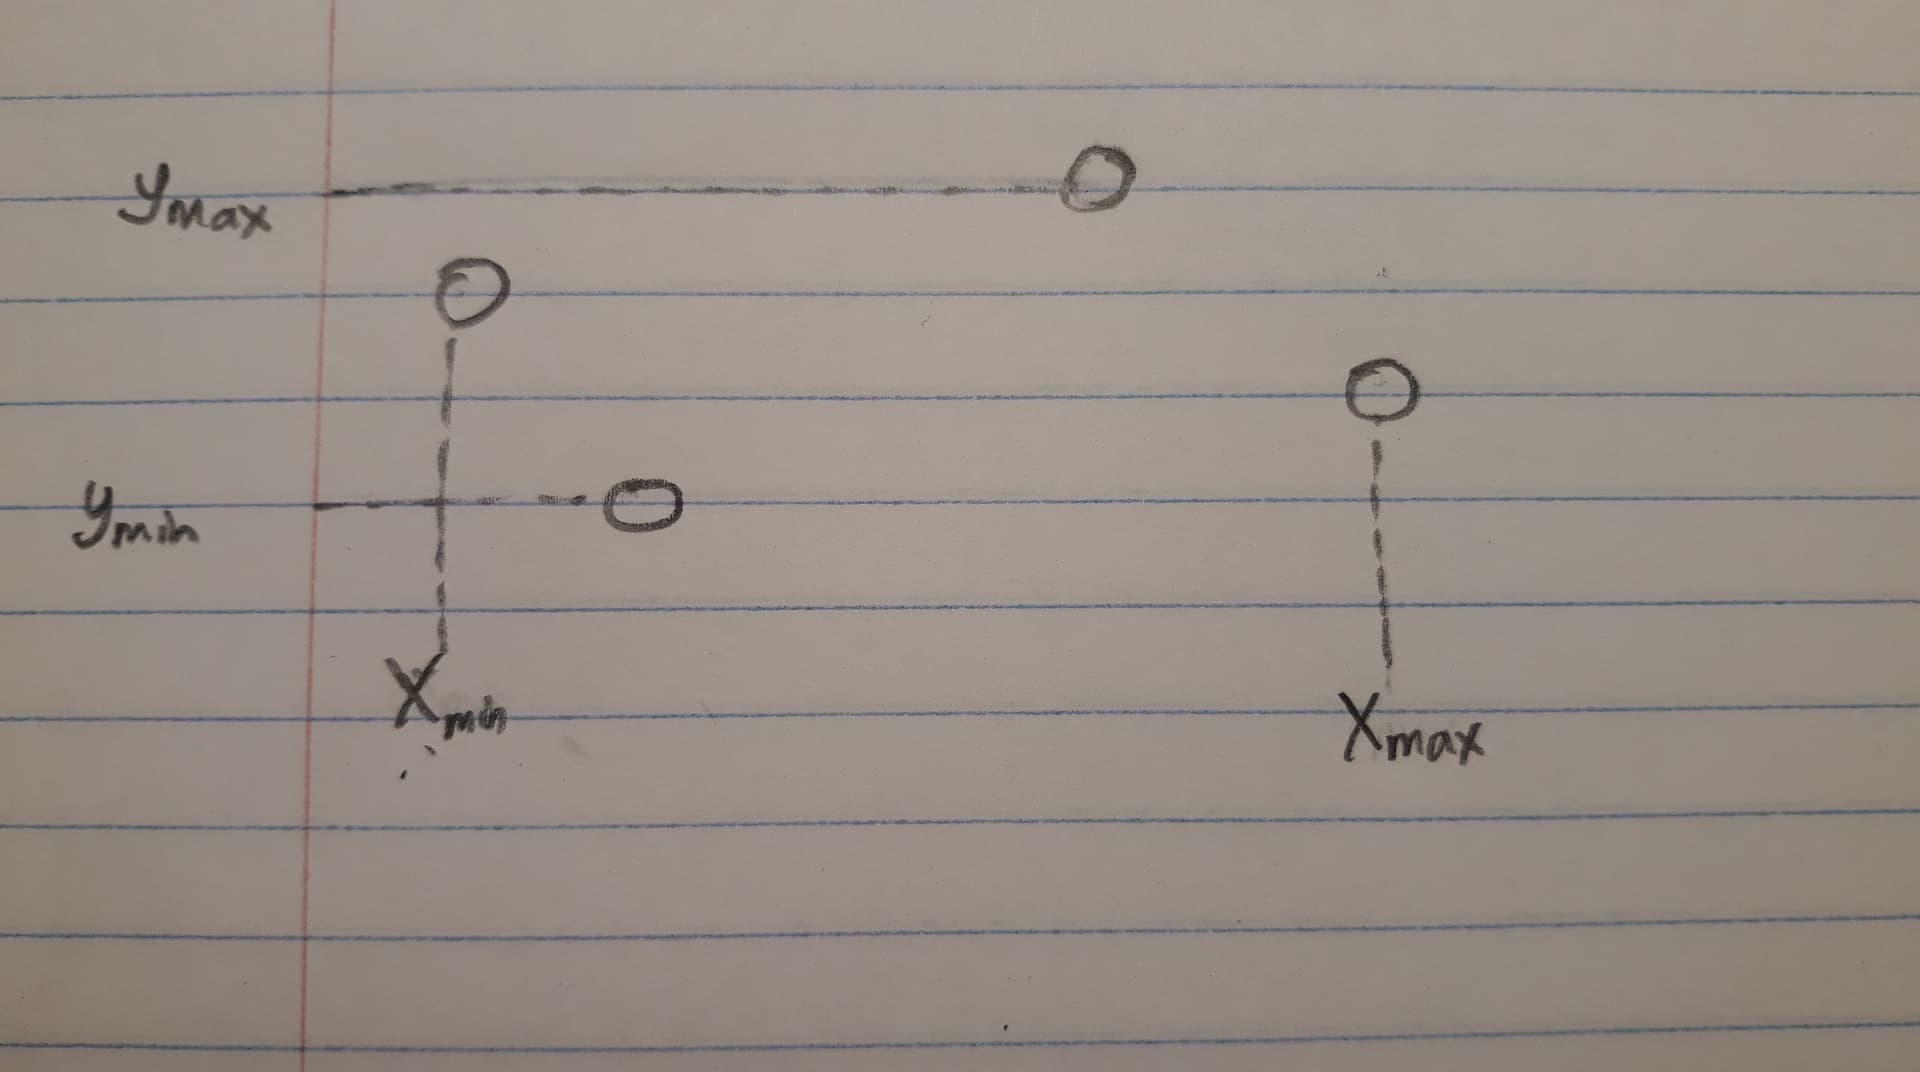 ymax
ymin
Xmin
Xmax